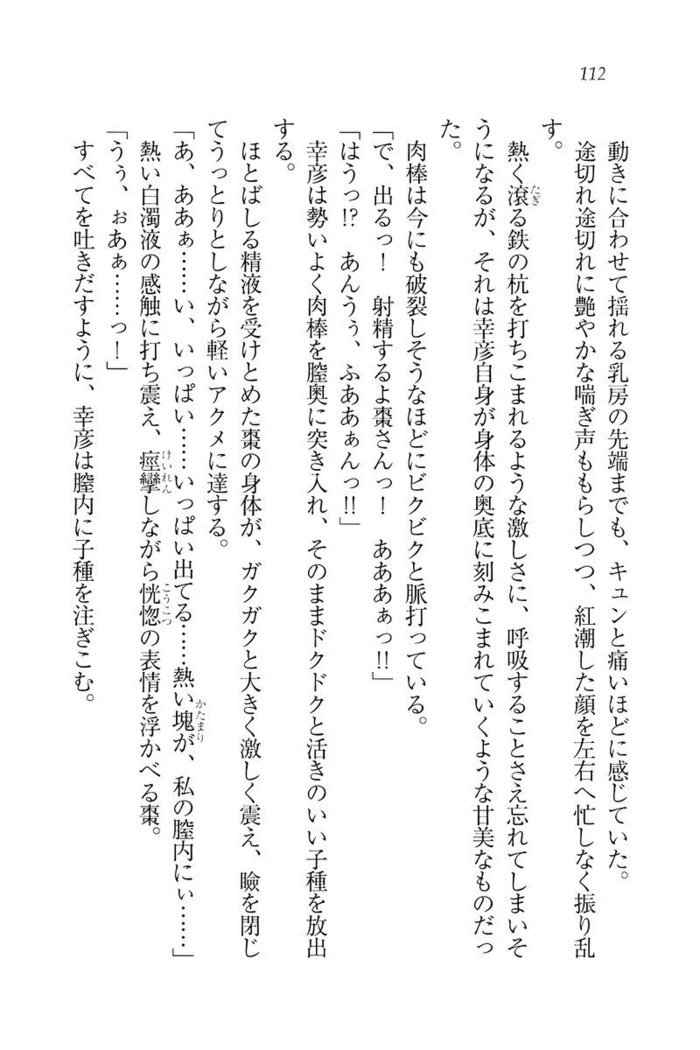 112
動きに合わせて揺れる乳房の先端までも、キュンと痛いほどに感じていた。
途切れ途切れに艶やかな喘ぎ声ももらしつつ、紅潮した顔を左右へ忙しなく振り乱
す。
熱く滾る鉄の杭を打ちこまれるような激しさに、呼吸することさえ忘れてしまいそ
うになるが、それは幸彦自身が身体の奥底に刻みこまれていくような甘美なものだっ
た。
肉棒は今にも破裂しそうなほどにビクビクと脈打っている。
「で、出るっ！　射精するよ棗さんっ！　あああぁっ!!」
「はうっ!?　あんうぅ、ふああぁんっ!!」
幸彦は勢いよく肉棒を膣奥に突き入れ、そのままドクドクと活きのいい子種を放出
する。
ほとばしる精液を受けとめた棗の身体が、ガクガクと大きく激しく震え、瞼を閉じ
てうっとりとしながら軽いアクメに達する。
「あ、ああぁ……い、いっぱい……いっぱい出てる……熱い塊が、私の膣内にぃ……」
熱い白濁液の感触に打ち震え、痙攣しながら恍惚の表情を浮かべる棗。
「うぅ、ぉあぁ……っ！」
すべてを吐きだすように、幸彦は膣内に子種を注ぎこむ。